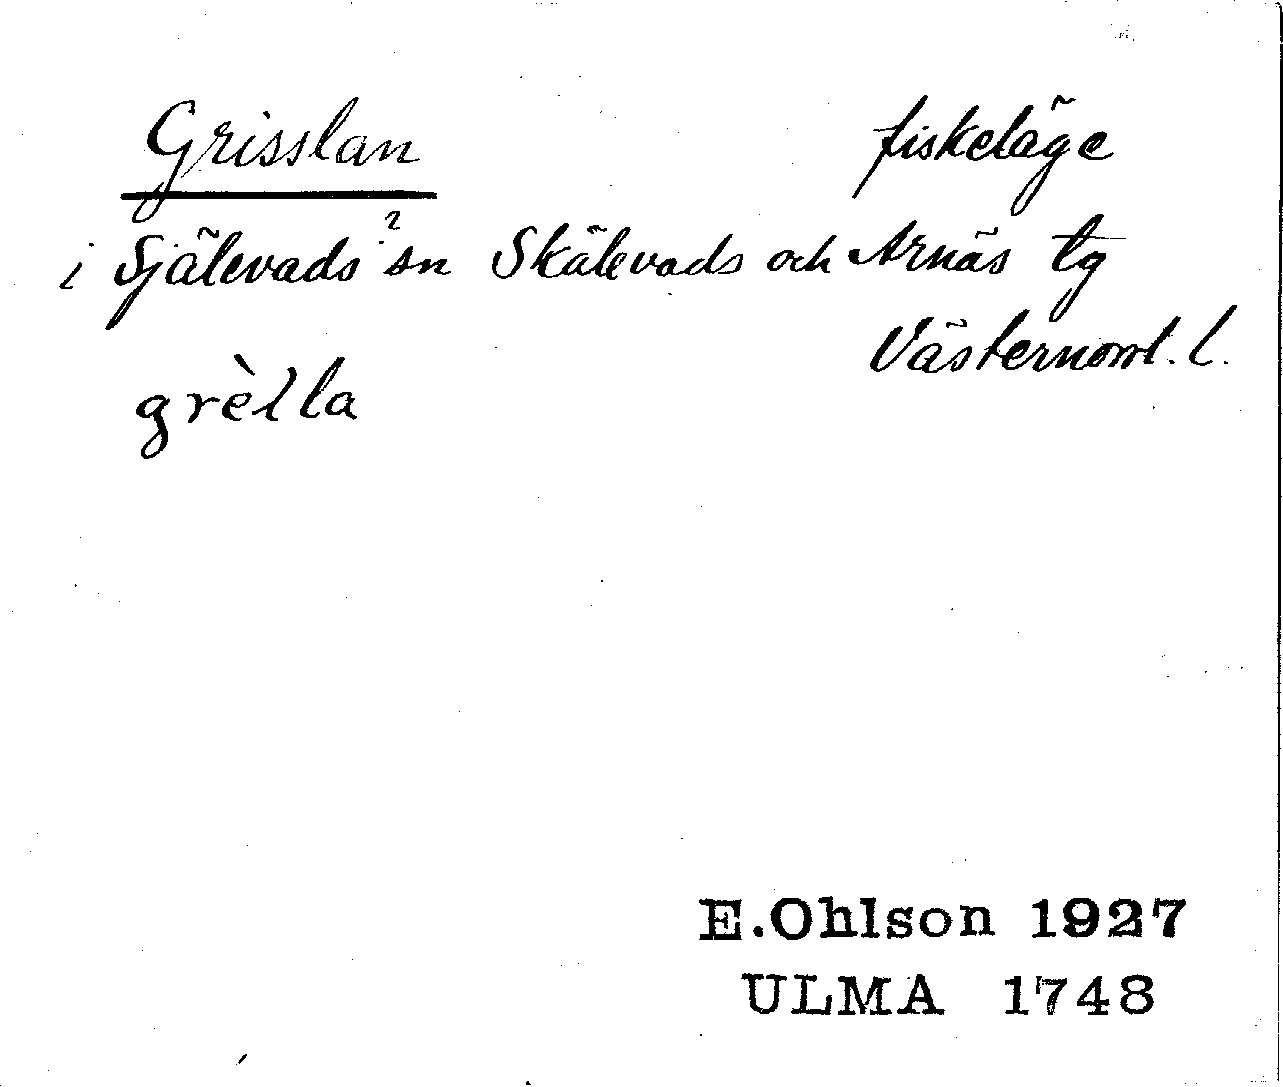 Grisslan fiskeläge
i Själevads ? sn Skälevads och Arnäs tg
Västernorrl. l.
grèlla
E.Ohlson 1927
ULMA 1748